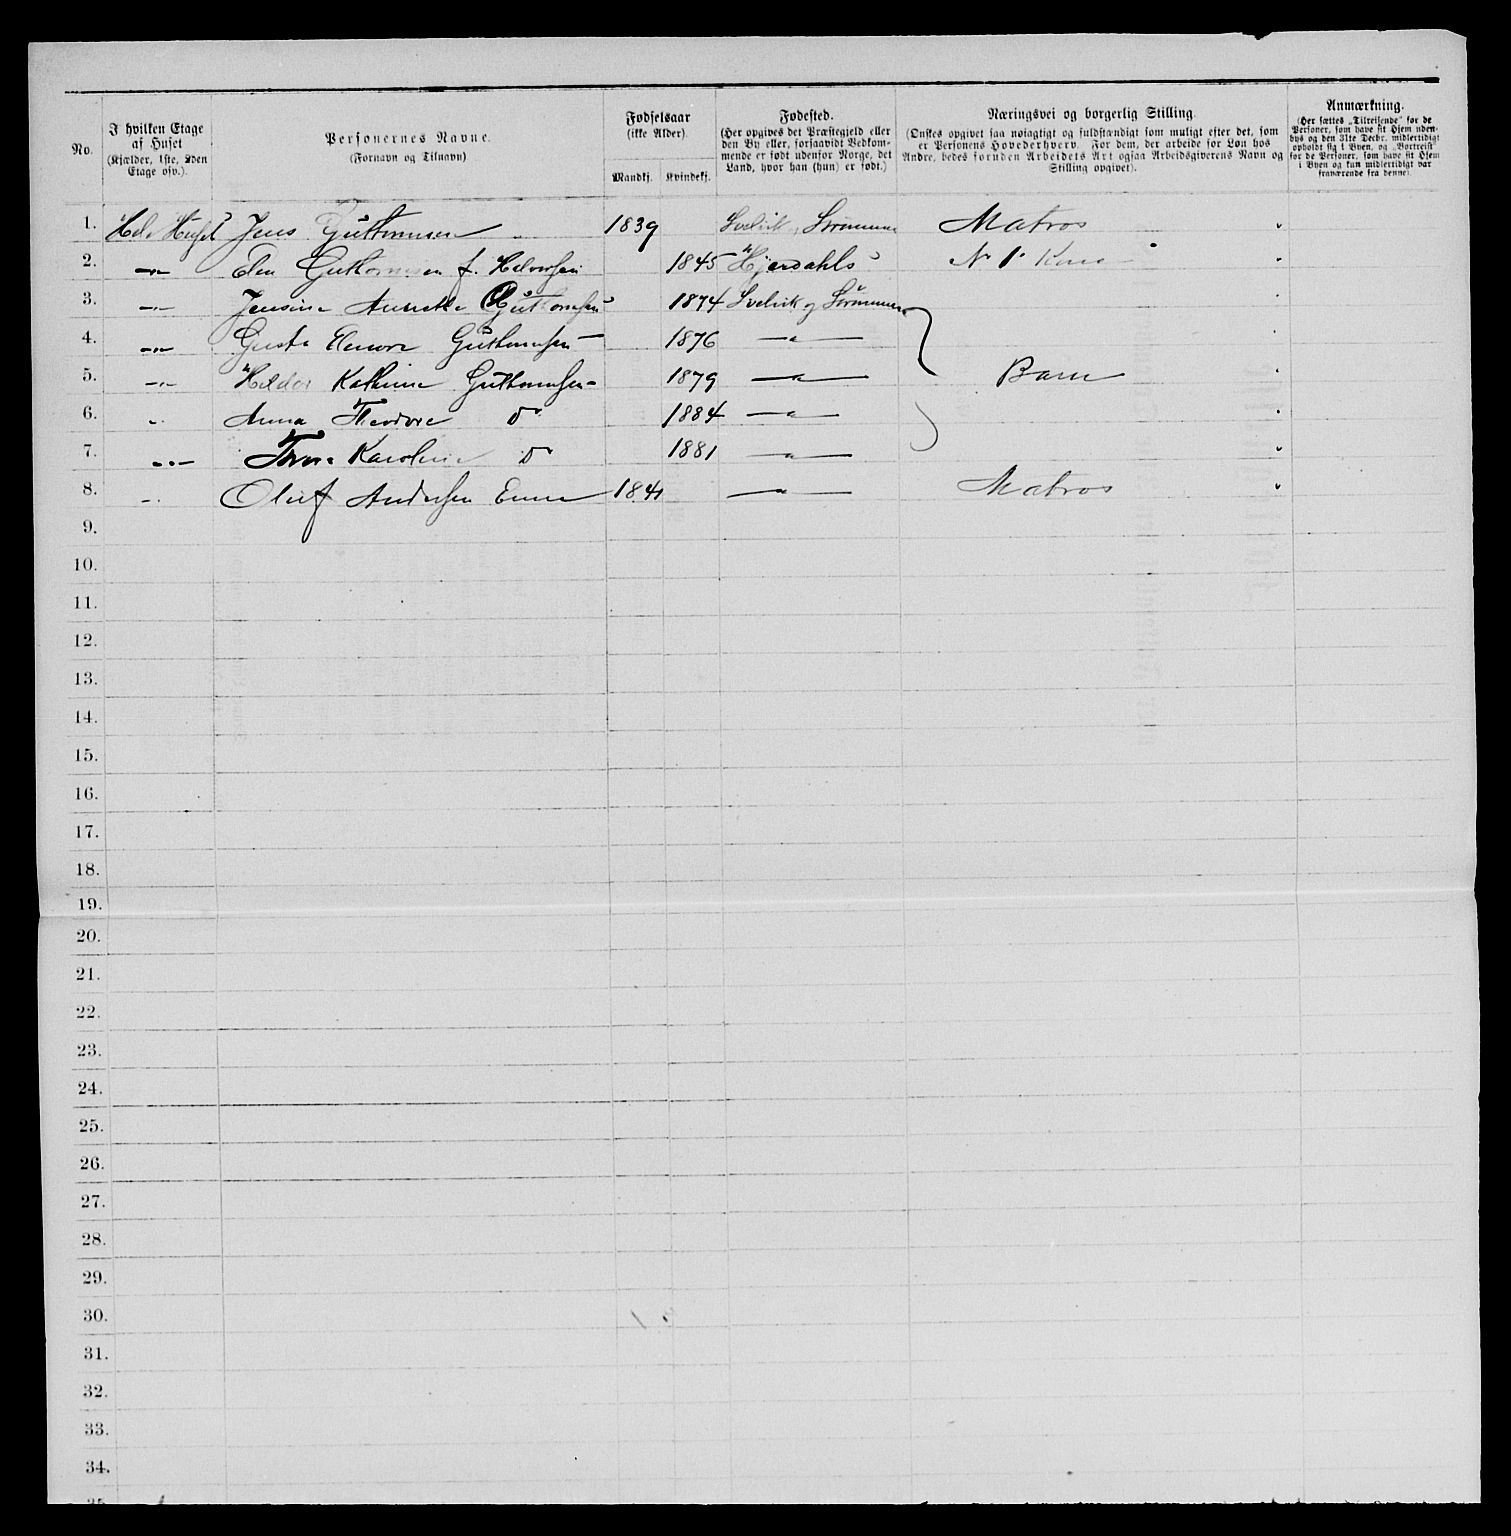 No.
I hvilken Etage af Huset (Kjælder, 1ste, 2den Etage osv.).
Personernes Navne. (Fornavn og Tilnavn)
Fødselsaar (ikke Alder).
Mandkj. Kvindekj.
Fødested. (Her opgives det Præstegjeld eller den By eller, forsaavidt Vedkommende er født udenfor Norge, det Land, hvor han (hun) er født.)
Næringsvei og borgerlig Stilling. (Ønskes opgivet saa nøiagtigt og fuldstændigt som muligt efter det, som er Personens Hovederhverv. For dem, der arbeide for Løn hos Andre, bedes foruden Arbeidets Art ogsaa Arbeidsgiverens Navn og Stilling opgivet).
Anmærkning. (Her sættes „Tilreisende” for de Personer, som have sit Hjem udenbys og den 31te Decbr. midlertidigt opholdt sig i Byen, og „Bortreist” for de Personer, som have sit Hjem i Byen og kun midlertidigt var fraværende fra denne)
1. Hele Huset Jens Guttormsen 1839 Svelvik, Strømmen Matros "
2. —"— Elen Guttormsen f. Halvorsen 1845 Hjerdahls No 1s Kone "
3. —"— Jensine Guttormsen 1874 Svelvik og Strømmen
4. —"— Gusta Elenore Guttormsen 1876 —"—
5. —"— Kathrine Guttormsen 1879 —"— Barn "
6. " Anna Theodore Do 1884 —"— "
7. —"— Karoline Do 1881 —"— "
8. " Oluf Andersen 1841 —"— Matros "
9.
10.
11.
12.
13.
14.
15.
16.
17.
18.
19.
20.
21.
22.
23.
24.
25.
26.
27.
28.
29.
30.
31.
32.
33.
34.
35